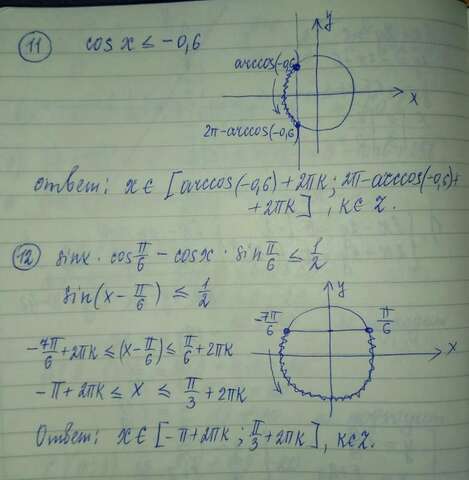 11 cos x ≤ -0,6
y
arccos(-0,6)
x
2π-arccos(-0,6)
Ответ: x∈[arccos(-0,6)+2πк; 2π-arccos(-0,6)+
+2πк], к∈Z.
12 sinx · cos π/6 - cosx · sin π/6 ≤ 1/2
sin(x - π/6) ≤ 1/2
y
-7π/6
π/6
-7π/6+2πк ≤ (x-π/6) ≤ π/6+2πк
x
-π+2πк ≤ x ≤ π/3+2πк
Ответ: x∈[-π+2πк; π/3+2πк], к∈Z.